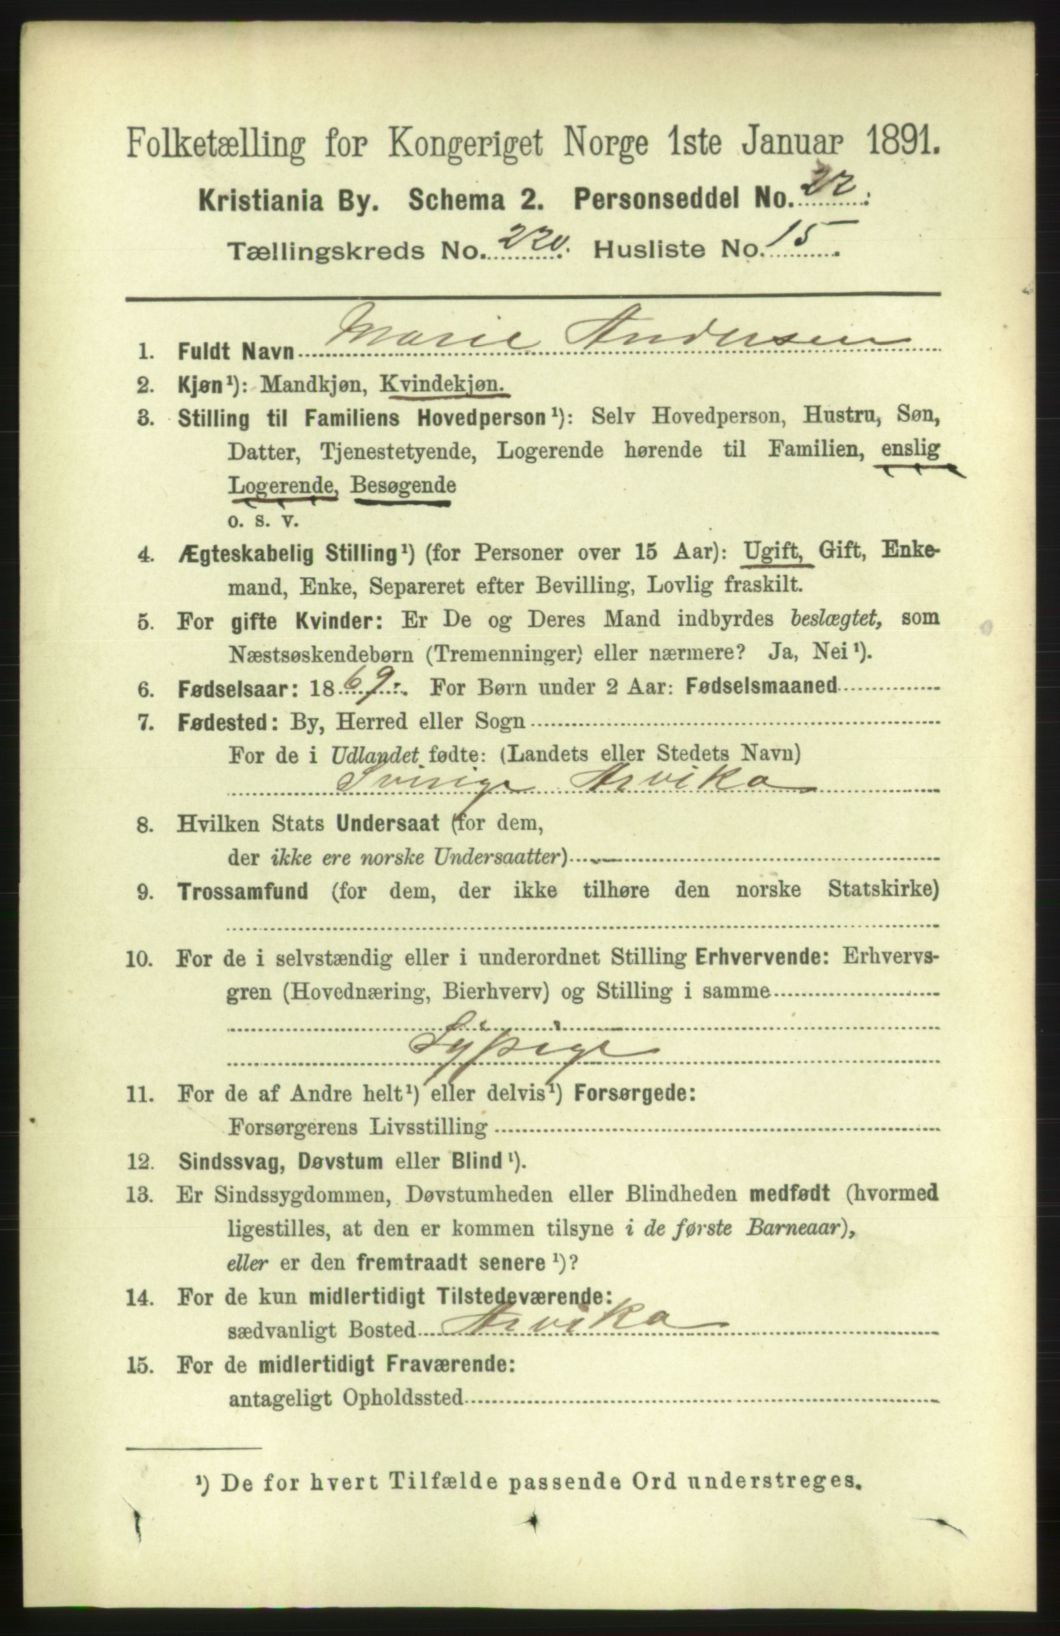 Folketælling for Kongeriget Norge 1ste Januar 1891.
Kristiania By. Schema 2. Personseddel No. 22.
Tællingskreds No. 220. Husliste No. 15.
1. Fuldt Navn Marie Andersen
2. Kjøn¹): Mandkjøn, Kvindekjøn.
3. Stilling til Familiens Hovedperson¹): Selv Hovedperson, Hustru, Søn,
Datter, Tjenestetyende, Logerende hørende til Familien, enslig
Logerende, Besøgende
o. s. v.
4. Ægteskabelig Stilling¹) (for Personer over 15 Aar): Ugift, Gift, Enke-
mand, Enke, Separeret efter Bevilling, Lovlig fraskilt.
5. For gifte Kvinder: Er De og Deres Mand indbyrdes beslægtet, som
Næstsøskendebørn (Tremenninger) eller nærmere? Ja, Nei¹).
6. Fødselsaar: 1869. For Børn under 2 Aar: Fødselsmaaned
7. Fødested: By, Herred eller Sogn
For de i Udlandet fødte: (Landets eller Stedets Navn)
Sverige Arvika
8. Hvilken Stats Undersaat (for dem,
der ikke ere norske Undersaatter)
9. Trossamfund (for dem, der ikke tilhøre den norske Statskirke)
10. For de i selvstændig eller i underordnet Stilling Erhvervende: Erhvervs-
gren (Hovednæring, Bierhverv) og Stilling i samme
Sypige
11. For de af Andre helt¹) eller delvis¹) Forsørgede:
Forsørgerens Livsstilling
12. Sindssvag, Døvstum eller Blind¹).
13. Er Sindssygdommen, Døvstumheden eller Blindheden medfødt (hvormed
ligestilles, at den er kommen tilsyne i de første Barneaar),
eller er den fremtraadt senere¹)?
14. For de kun midlertidigt Tilstedeværende:
sædvanligt Bosted Arvika
15. For de midlertidigt Fraværende:
antageligt Opholdssted
¹) De for hvert Tilfælde passende Ord understreges.